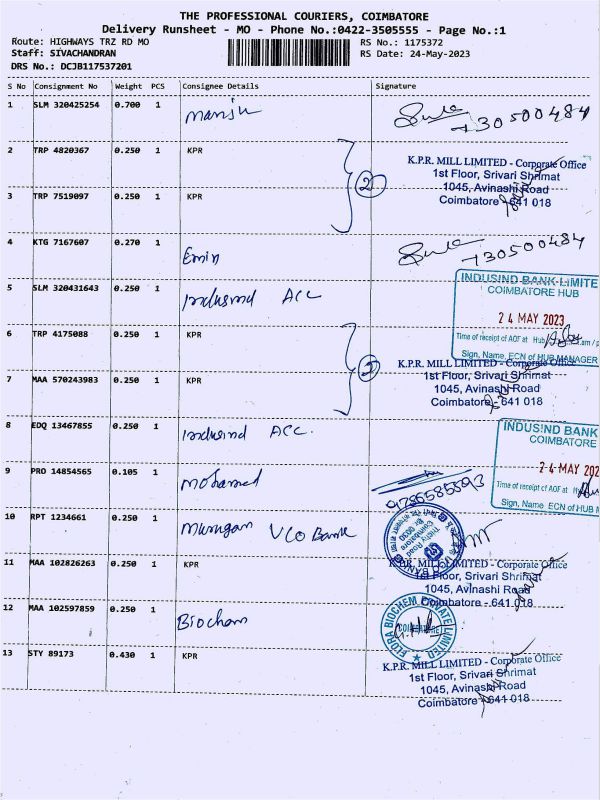 THE PROFESSIONAL COURIERS, COIMBATORE
Delivery Runsheet - MO - Phone No.:0422-3505555 - Page No.:1
Route: HIGHWAYS TRZ RD MO RS No.: 1175372
Staff: SIVACHANDRAN RS Date: 24-May-2023
DRS No.: DCJB117537201
S No Consignment No Weight PCS Consignee Details Signature
1 SLM 320425254 0.700 1 Manish
730500484
2 TRP 4820367 0.250 1 KPR
K.P.R. MILL LIMITED - Corporate Office
1st Floor, Srivari Shrimat
2
3 TRP 7519097 0.250 1 KPR
1045, Avinashi Road
Coimbatore - 641 018
4 KTG 7167607 0.270 1 Emin
730500484
5 SLM 320431643 0.250 1 Indusind ACC
INDUSIND BANK LIMITE
COIMBATORE HUB
24 MAY 2023
Time of receipt of AOF at Hub am / p
Sign, Name, ECN of HUB MANAGER
6 TRP 4175088 0.250 1 KPR
2
7 MAA 570243983 0.250 1 KPR
K.P.R. MILL LIMITED - Corporate Office
1st Floor, Srivari Shrimat
1045, Avinashi Road
Coimbatore - 641 018
8 EDQ 13467855 0.250 1 Indusind ACC.
INDUSIND BANK
COIMBATORE
24 MAY 202
Time of receipt of AOF at
Sign, Name, ECN of HUB M
9 PRO 14854565 0.105 1 Mohamed
10 RPT 1234661 0.250 1 Murugan UCO Bank
Trichy Road
Coimbatore
11 MAA 102826263 0.250 1 KPR
K.P.R. MILL LIMITED - Corporate Office
1st Floor, Srivari Shrimat
1045, Avinashi Road
Coimbatore - 641 018
12 MAA 102597859 0.250 1 Biochem
FLORA BIOCHEM PRIVATE LIMITED
13 STY 89173 0.430 1 KPR
K.P.R. MILL LIMITED - Corporate Office
1st Floor, Srivari Shrimat
1045, Avinashi Road
Coimbatore - 641 018